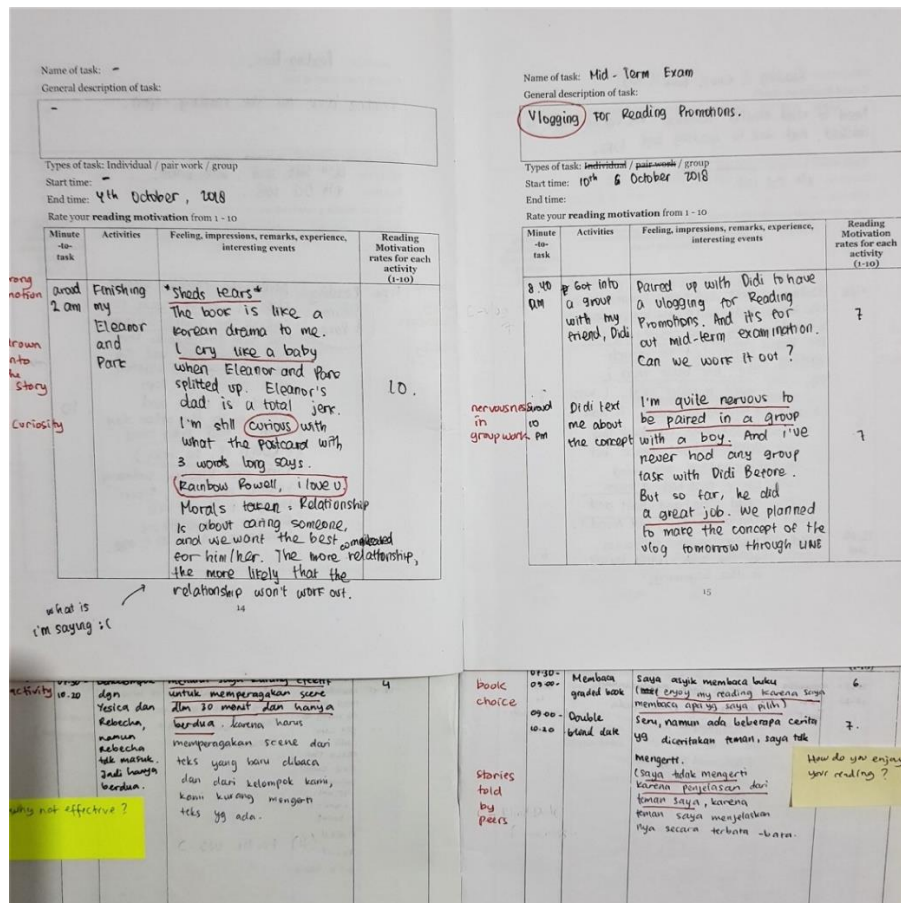 Name of task: -
General description of task:
-
Types of task: Individual / pair work / group
Start time: -
End time: 4th October, 2018
Rate your reading motivation from 1 - 10
Minute -to- task
Activities
Feeling, impressions, remarks, experience, interesting events
Reading Motivation rates for each activity (1-10)
aroud
2 am
Finishing
my
Eleanor
and
Park
*Sheds tears*
The book is like a
korean drama to me.
I cry like a baby
when Eleanor and Park
splitted up. Eleanor's
dad is a total jerk.
I'm still curious with
what the postcard with
3 words long says.
Rainbow Rowell, i love u.
Morals taken: Relationship
is about caring someone,
and we want the best
for him/her. The more complicated relationship,
the more likely that the
relationship won't work out.
10.
story
curiosity
what is
i'm saying :(
14
Name of task: Mid - Term Exam
General description of task:
Vlogging For Reading Promotions.
Types of task: Individual / pair work / group
Start time: 10th October 2018
End time:
Rate your reading motivation from 1 - 10
Minute -to- task
Activities
Feeling, impressions, remarks, experience, interesting events
Reading Motivation rates for each activity (1-10)
8.40
am
Got into
a group
with my
friend, Didi
Paired up with Didi to have
a vlogging for Reading
Promotions. And it's for
out mid-term examination.
Can we work it out?
7
nervousness
in
group work
aroud
10
pm
Didi text
me about
the concept
I'm quite nervous to
be paired in a group
with a boy. And i've
never had any group
task with Didi Before.
But so far, he did
a great job. We planned
to make the concept of the
vlog tomorrow through LINE
7
15
activity
10.20
dgn
Yesica dan
Rebecha,
namun
Rebecha
tdk masuk.
Jadi hanya
berdua.
untuk memperagakan scene
dlm 30 menit dan hanya
berdua. karena harus
memperagakan scene dari
teks yang baru dibaca
dan dari kelompok kami,
kami kurang mengerti
teks yg ada.
4
why not effective?
book
choice
09.00-
Membaca
graded book
Saya asyik membaca buku
(enjoy my reading karena saya
membaca apa yg saya pilih)
6.
09.00 -
10.20
Double
blend date
Seru, namun ada beberapa cerita
yg diceritakan teman, saya tdk
mengerti.
(saya tidak mengerti
karena penjelasan dari
teman saya, karena
teman saya menjelaskan
nya secara terbata-bata.
7.
stories
told
by
peers
How do you enjoy
your reading?